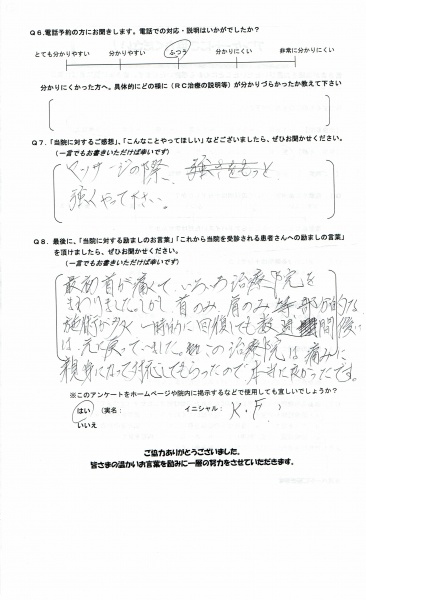 Q6.電話予約の方にお聞きします。電話での対応・説明はいかがでしたか?
とても分かりやすい 分かりやすい ふつう 分かりにくい 非常に分かりにくい
分かりにくかった方へ。具体的にどの様に(RC治療の説明等)が分かりづらかったか教えて下さい
Q7.「当院に対するご感想」、「こんなことやってほしい」などございましたら、ぜひお聞かせください。
(一言でもお書きいただけば幸いです)
マッサージの際、強さをもっと
強くやって下さい。
Q8.最後に、「当院に対する励ましのお言葉」「これから当院を受診される患者さんへの励ましの言葉」
を頂けましたら、ぜひお聞かせください。
(一言でもお書きいただけば幸いです)
最初首が痛くて、いろいろ治療院を
まわりました。しかし、首のみ、肩のみ等、部分的な
施術が多く一時的に回復しても数週間後に
は、元に戻っていました。この治療院は痛みに
親身になって対応してもらったので本当に良かったです。
※このアンケートをホームページや院内に掲示するなどで使用しても宜しいでしょうか?
はい (実名: イニシャル: K.F. )
いいえ
ご協力ありがとうございました。
皆さまの温かいお言葉を励みに一層の努力をさせていただきます。